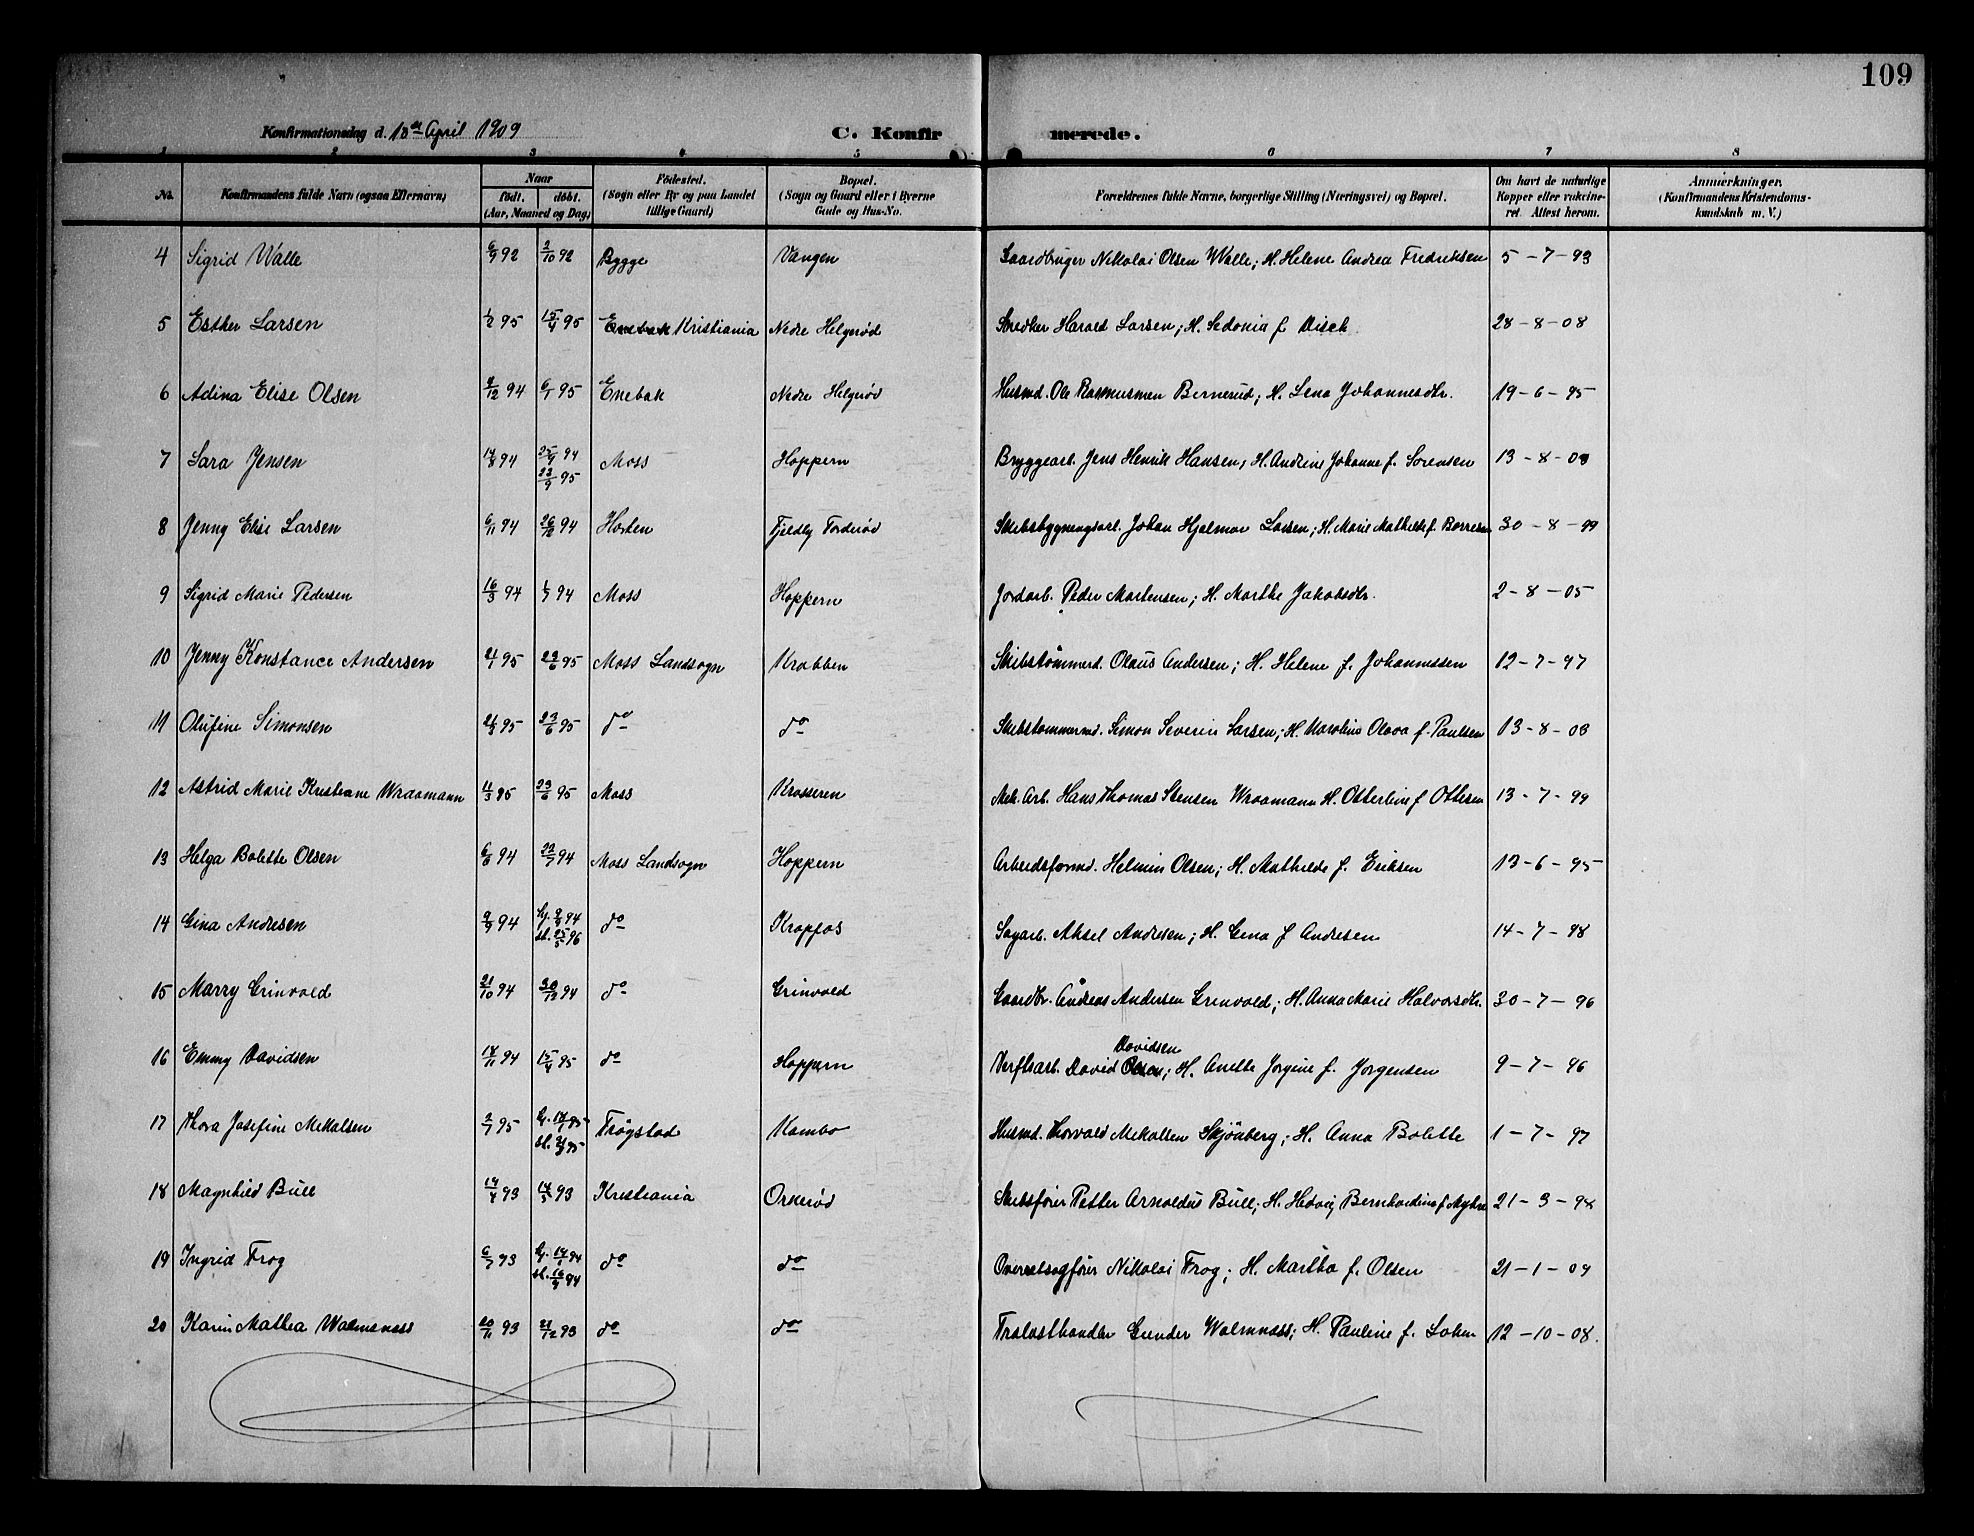 109
Konfirmationsdag d. 18de April 1909
C. Konfirmerede.
1 2 3 4 5 6 7 8
No. Konfirmandens fulde Navn (ogsaa Efternavn) Naar født. døbt. (Aar, Maaned og Dag) Fødested. (Sogn eller By og paa Landet tillige Gaard) Bopæl. (Sogn og Gaard eller i Byerne Gade og Hus-No. Forældrenes fulde Navne, borgerlige Stilling (Næringsvei) og Bopæl. Om havt de naturlige Kopper eller vakcineret. Attest herom. Anmærkninger. (Konfirmandens Kristendomskundskab m. V.)
4 Sigrid Walle 6/9 92 2/10 92 Rygge Vangen Gaardbruger Nikolai Olsen Walle; H. Helene Andrea Fredriksen 5-7-93
5 Esther Larsen 1/2 95 15/4 95 Enebak Kristiania Nedre Helgerød Snedker Harald Larsen; H. Sedonia f. Disch 28-8-08
6 Adina Elise Olsen /12 94 6/1 95 Enebak Nedre Helgerød Husmd. Ole Rasmussen Bernerud; H. Lena Johannesdtr. 19-6-95
7 Sara Jensen 14/8 94 25/9 94 22/9 95 Moss Hoppern Bryggearb. Jens Henrik Hansen; H. Andrine Johanne f. Sørensen 13-8-03
8 Jenny Elise Larsen 6/11 94 26/12 94 Horten Fjeldly Torderød Skibsbygningsarb. Johan Hjalmar Larsen; H. Marie Mathilde f. Borresen 30-8-99
9 Sigrid Marie Pedersen 16/3 94 1/7 94 Moss Hoppern Jordarb. Peder Martensen; H. Marthe Jakobsdtr. 2-8-05
10 Jenny Konstance Andersen 21/1 95 23/6 95 Moss Landsogn Krabben Skibstømmerd. Olaus Andersen; H. Helene f. Johannessen 12-7-97
11 Olufine Simonsen 21/3 95 23/6 95 do do Skibstømmermd. Simon Severin Larsen; H. Karoline Olava f. Paulsen 13-8-03
12 Astrid Marie Kristiane Wraamann 11/3 95 23/6 95 Moss Krosseren Mek. Arb. Hans Thomas Stensen Wraamann H. Otterline f. Ottesen 13-7-99
13 Helga Bolette Olsen 6/6 94 22/7 94 Moss Landsogn Hoppern Arbeidsformd. Helmin Olsen; H. Mathilde f. Eriksen 13-6-95
14 Gina Andresen 9/9 94 hj. 9/9 94 st. 25/5 96 do Kropfos Sagarb. Aksel Andresen; H. Gina f. Andresen 14-7-98
15 Marry Grinvold 21/10 94 30/12 94 do Grinvold Gaardbr. Andreas Andersen Grinvold; H. Anna Marie Halvorsdtr. 30-7-96
16 Emmy Davidsen 18/11 94 15/4 95 do Hoppern Verftsarb. David Olsen Davidsen; H. Anette Jørgine f. Jørgensen 9-7-96
17 Thora Josefine Mikalsen 2/7 95 Trøgstad Kambo Husmd. Thorvald Mikalsen Skjønberg; H. Anna Bolette 1-7-97
18 Magnhild Bull 14/4 93 14/5 93 Kristiania Orkerød Skibsfører Petter Arnoldus Bull; H. Hedvig Bernhardine f. Myhre 21-3-94
19 Ingrid Frog 6/7 93 hj. 14/1 94 st. 16/9 94 do do Overretssagfører Nikolai Frog; H. Martha f. Olsen 21-1-09
20 Karin Mathea Walmsnæss 20/11 93 21/12 93 do do Trælasthandler Gunder Walmnæss; H. Pauline f. Loken 12-10-08.